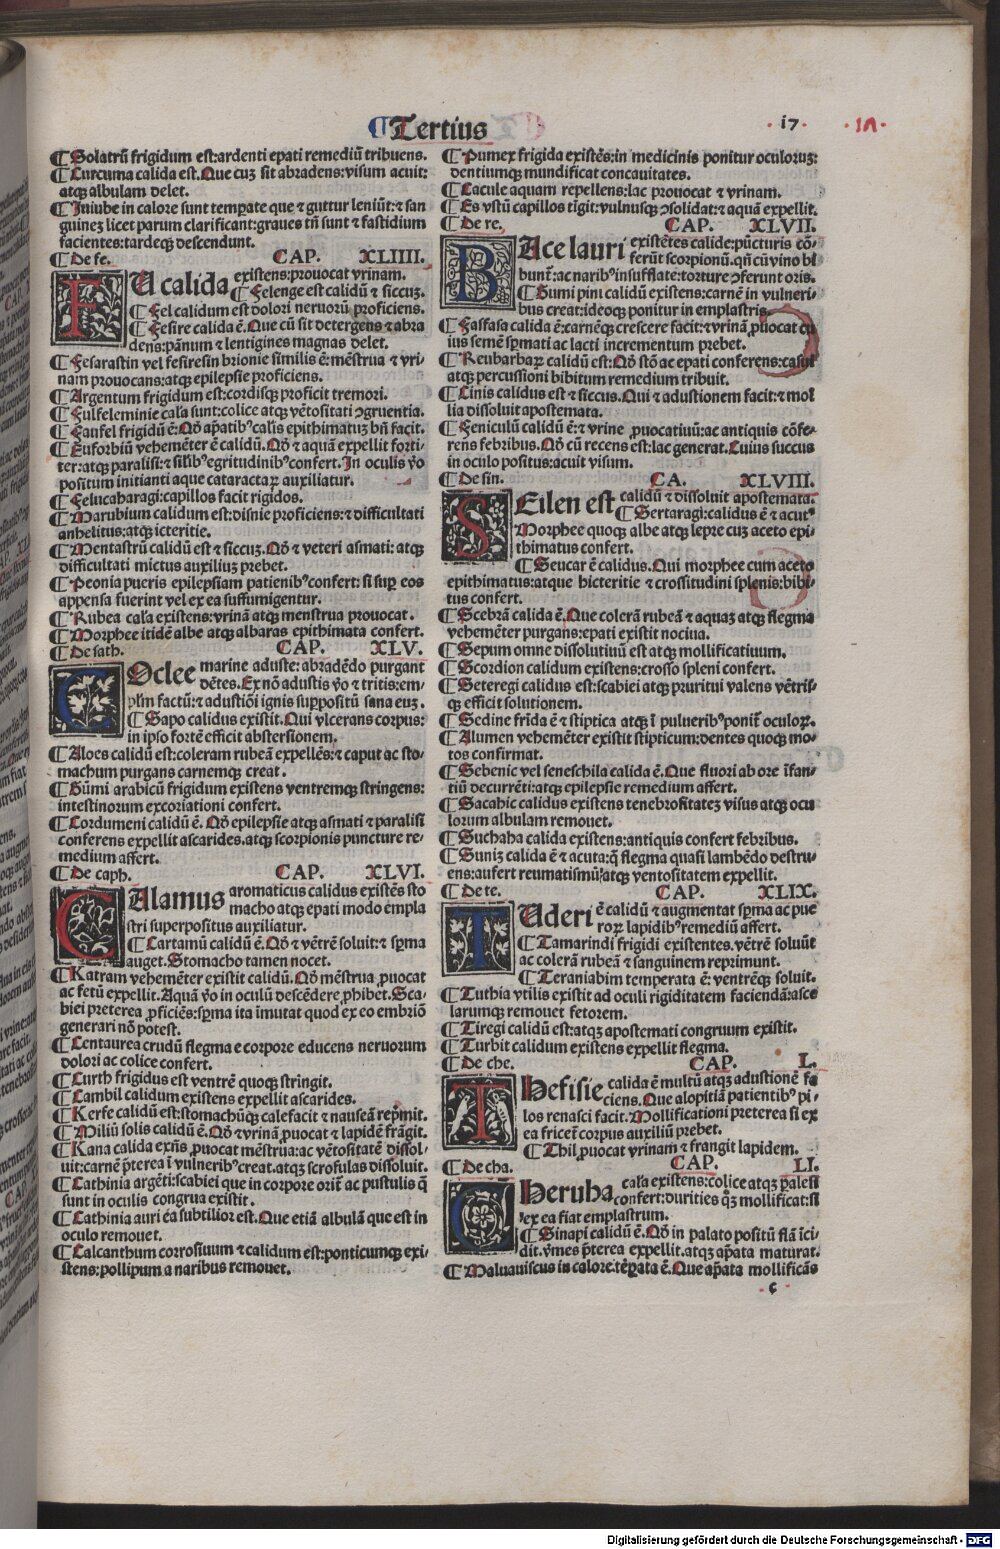 ¶Tertius
·i7·
·1Λ·
¶Solatrũ frigidum est:ardenti epati remediũ tribuens.
¶Curcuma calida est.Que cuʒ sit abradens:visum acuit:
atqʒ albulam delet.
¶Iniube in calore sunt temꝑate que ⁊ guttur leniũt:⁊ san
guineʒ licet parum clarificant:graues tñ sunt ⁊ fastidium
facientes:tardeqʒ descendunt.
¶De fe. CAP. XLIIII.
FU calida existens:prouocat vrinam.
¶Felenge est calidũ ⁊ siccuʒ.
¶Fel calidum est dolori neruorũ proficiens.
¶Fesire calida ẽ.Que cũ sit detergens ⁊ abra
dens:pãnum ⁊ lentigines magnas delet.
¶Fesarastin vel fesiresin brionie similis ẽ:mẽstrua ⁊ vri-
nam prouocans:atqʒ epilepsie proficiens.
¶Argentum frigidum est:cordisqʒ proficit tremori.
¶Fulfeleminie cala sunt:colice atqʒ vẽtositati ↄgruentia.
¶Faufel frigidũ ẽ:Qð aꝑatibꝰ calis epithimatuʒ bñ facit.
¶Euforbiũ vehemẽter ẽ calidũ.Qð ⁊ aquã expellit forti-
ter:atqʒ paralisi:⁊ silibꝰ egritudinibꝰ confert.In oculis ṽo
positum initianti aque cataractaꝝ auxiliatur.
¶Felucaharagi:capillos facit rigidos.
¶Marubium calidum est:disnie proficiens:⁊ difficultati
anhelitus:atqʒ icteritie.
¶Mentastrũ calidũ est ⁊ siccuʒ.Qð ⁊ veteri asmati:atqʒ
difficultati mictus auxiliuʒ prebet.
¶Peonia pueris epilepsiam patienibꝰ confert:si suꝑ eos
appensa fuerint vel ex ea suffumigentur.
¶Rubea cala existens:vrinã atqʒ menstrua prouocat.
¶Morphee itidẽ albe atqʒ albaras epithimata confert.
¶De sath. CAP. XLV.
COclee marine aduste:abradẽdo purgant
dẽtes.Ex nõ adustis ṽo ⁊ tritis:em-
plm factũ:⁊ adustiõi ignis suppositũ sana euʒ.
¶Sapo calidus existit.Qui vlcerans corpus:
in ipso fortẽ efficit abstersionem.
¶Aloes calidũ est:coleram rubeã expellẽs:⁊ caput ac sto-
machum purgans carnemqʒ creat.
¶Gũmi arabicũ frigidum existens ventremqʒ stringens:
intestinorum excoriationi confert.
¶Cordumeni calidũ ẽ. Qð epilepsie atqʒ asmati ⁊ paralisi
conferens expellit ascarides.atqʒ scorpionis puncture re-
medium affert.
¶De caph. CAP. XLVI.
CAlamus aromaticus calidus existẽs sto
macho atqʒ epati modo empla
stri superpositus auxiliatur.
¶Cartamũ calidũ ẽ.Qð ⁊ vẽtrẽ soluit:⁊ sꝑma
auget.Stomacho tamen nocet.
¶Katram vehemẽter existit calidũ.Qð mẽstrua ꝓuocat
ac fetũ expellit.Aquã ṽo in oculũ descẽdere ꝓhibet.Sca-
biei preterea ꝓficiẽs:sꝑma ita ĩmutat quod ex eo embriõ
generari nõ potest.
¶Centaurea crudũ flegma e corpore educens neruorum
dolori ac colice confert.
¶Curth frigidus est ventrẽ quoqʒ stringit.
¶Cambil calidum existens expellit ascarides.
¶Kerfe calidũ est:stomachũqʒ calefacit ⁊ nauseã reꝑmit.
¶Miliũ solis calidũ ẽ.Qð ⁊ vrinã ꝓuocat ⁊ lapidẽ frãgit.
¶Kana calida exñs ꝓuocat mẽstrua:ac vẽtositatẽ dissol-
uit:carnẽ ꝑterea ĩ vulneribꝰ creat.atqʒ scrofulas dissoluit.
¶Cathinia argẽti:scabiei que in corpore oriť ac pustulis q̃
sunt in oculis congrua existit.
¶Cathinia auri ea subtilior est.Que etiã albulã que est in
oculo remouet.
¶Calcanthum corrosiuum ⁊ calidum est:ponticumqʒ exi-
stens:pollipum a naribus remouet.
¶Pumex frigida existẽs:in medicinis ponitur oculoruʒ:
dentiumqʒ mundificat concauitates.
¶Cacule aquam repellens:lac prouocat ⁊ vrinam.
¶Es vstũ capillos tĩgit:vulnusqʒ ↄsolidat:⁊ aquã expellit.
¶De re. CAP. XLVII.
BAce lauri existẽtes calide:pũcturis cõ-
ferũt scorpionũ.qñ cũ vino bi
bunť:ac naribꝰ insufflate:torture ↄferunt oris.
¶Gumi pini calidũ existens:carnẽ in vulneri-
bus creat:ideoqʒ ponitur in emplastris.
¶Fasfasa calida ẽ:carnẽqʒ crescere facit:⁊ vrinã ꝓuocat cu
ius semẽ sꝑmati ac lacti incrementum prebet.
¶Reubarbaꝝ calidũ est:Qð stõ ac epati conferens:casui
atqʒ percussioni bibitum remedium tribuit.
¶Cinis calidus est ⁊ siccus.Qui ⁊ adustionem facit:⁊ mol
lia dissoluit apostemata.
¶Feniculũ calidũ ẽ:⁊ vrine ꝓuocatiuũ:ac antiquis cõfe-
rẽns febribus.Qð cũ recens est:lac generat.Cuius succus
in oculo positus:acuit visum.
¶De sin. CA. XLVIII.
SEilen est calidũ ⁊ dissoluit apostemata.
¶Sertaragi:calidus ẽ ⁊ acutꝰ
Morphee quoqʒ albe atqʒ lepre cuʒ aceto epi-
thimatus confert.
¶Seucar ẽ calidus.Qui morphee cum aceto
epithimatus:atque hicteritie ⁊ crossitudini splenis:bibi-
tus confert.
¶Scebrã calida ẽ.Que colerã rubeã ⁊ aquaʒ atqʒ flegma
vehemẽter purgans:epati existit nociua.
¶Sepum omne dissolutiuũ est atqʒ mollificatiuum.
¶Scordion calidum existens:crosso spleni confert.
¶Seteregi calidus est:scabiei atqʒ pruritui valens vẽtris-
qʒ efficit solutionem.
¶Sedine friďa ẽ ⁊ stiptica atqʒ ĩ pulueribꝰ poniť oculoꝝ.
¶Alumen vehemẽter existit stipticum:dentes quoqʒ mo-
tos confirmat.
¶Sebenic vel seneschila calida ẽ.Que fluori ab ore ĩfan-
tiũ decurrẽti:atqʒ epilepsie remedium affert.
¶Sacahic calidus existens tenebrositateʒ visus atqʒ ocu
lorum albulam remouet.
¶Suchaha calida existens:antiquis confert febribus.
¶Suniʒ calida ẽ ⁊ acuta:q̃ flegma quasi lambẽdo destru-
ens:aufert reumatismũ:atqʒ ventositatem expellit.
¶De te. CAP. XLIX.
TUderi ẽ calidũ ⁊ augmentat sꝑma ac pue
roꝝ lapidibꝰ remediũ affert.
¶Tamarindi frigidi existentes.vẽtrẽ soluũt
ac colerã rubeã ⁊ sanguinem reprimunt.
¶Teraniabim temperata ẽ:ventrẽqʒ soluit.
¶Tuthia vtilis existit ad oculi rigiditatem faciendã:asce
larumqʒ remouet fetorem.
¶Tiregi calidũ est:atqʒ apostemati congruum existit.
¶Turbit calidum existens expellit flegma.
¶De che. CAP. L.
THefisie calida ẽ multũ atqʒ adustionẽ fa
ciens.Que alopitiã patientibꝰ pi-
los renasci facit.Mollificationi preterea si ex
ea friceť corpus auxiliũ prebet.
¶Thil ꝓuocat vrinam ⁊ frangit lapidem.
¶De cha. CAP. LI.
CHeruha cala existens:colice atqʒ ꝑalesi
confert:durities qʒ mollificat:si
ex ea fiat emplastrum.
¶Sinapi calidũ ẽ.Qð in palato positũ flã ĩci-
dit.v̾mes ꝑterea expellit.atqʒ aꝑata maturat.
¶Maluauiscus in calore.tẽꝑata ẽ.Que aꝑata mollificãs
c
Digitalisierung gefördert durch die Deutsche Forschungsgemeinschaft - DFG